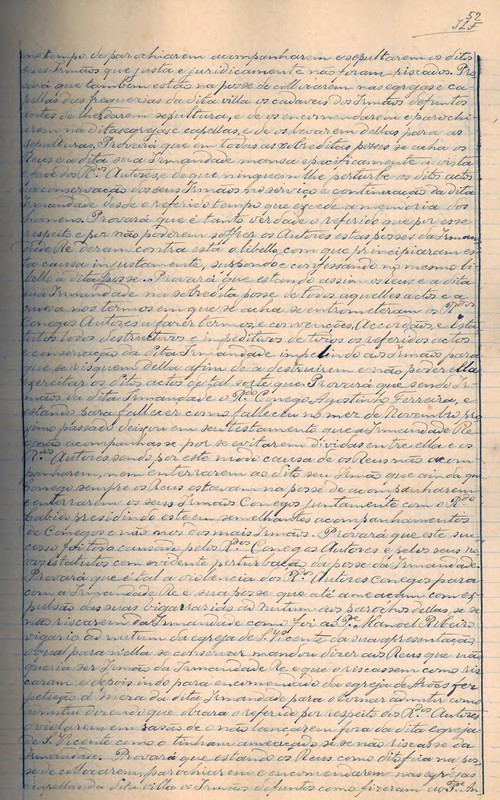 52
mo tempo de parochiarem acompanharem e sepultarem os ditos
seus Irmãos que justa e juridicamente não foram riscados. Pro
vará que tambem estão na posse de collocarem nas egrejas e ca
pellas das freguesias da dita villa os cadaveres dos Irmãos defuntos
antes de lhes darem sepultura, e de os encommendarem e parochi
arem na ditas egrejas e capellas, e de os levarem dellas para as
sepulturas. Provará que em todas as sobreditas posses se acha os
Reus e a dita sua Irmandade mansa e pacificamente á vista
e face dos R.dos Autores e de que ninguem lhe perturbe os ditos actos
a conservação dos seus Irmãos no serviço e continuação da dita
Irmandade desde o referido tempo que excede a memoria dos
homens. Provará que é tanto verdade o referido que por esse
respeito e por não poderem soffrer os Autores estas posses da Irman
dade Re deram contra esta o libello, com que principiaram es
ta causa injustamente, suppondo e confessando no mesmo li
bello a dita posse. Provará que estando assim os Reus e a dita
sua Irmandade na sobredita posse de todos aquelles actos e a
causa nos termos em que se acha se entrometteram os R.dos
Conegos Autores a fazer termos, e convenções, Accordãos, e Esta
tutos todos destructivos e impeditivos de todos os referidos actos
e conservação da dita Irmandade impellindo aos Irmãos para
que se risquem della afim de a destruirem e não poder ella
exercitar os ditos actos de tal sorte que Provará que sendo Ir
mão da dita Irmandade o R.do Conego Agostinho Ferreira, e
estando para fallecer como falleceu no mez de Novembro pro
ximo passado deixou em seu testamento que a Irmandade Re
não o acompanhasse por se evitarem dividas entre ella e os
R.dos Autores sendo por este modo causa de os Reus não acom
panharem, nem enterrarem ao dito seu Irmão que ainda que
Conego sempre os Reus estavam na posse de acompanharem
e enterrarem os seus Irmãos Conegos juntamente com o R.do
Cabido presidindo este em semelhantes acompanhamentos
de Conegos e não nos dos mais Irmãos. Provará que este suc
cesso foi todo causado pelos R.dos Conegos Autores e pelos seus no
vos Estatutos com evidente perturbação da posse da Irmandade.
Provará que é tal a violencia dos R.dos Autores Conegos para
com a Irmandade Re e sua posse que até ameaçam com ex
pulsão das suas vigararias ad nutum aos parochos dellas, se se
não riscarem da Irmandade como foi ao P.e Manoel Ribeiro
vigario ad nutum da egreja de S. Vicente da sua apresentação
o qual para nella se conservar mandou dizer aos Reus que não
queria ser Irmão da Irmandade Re e que o riscassem como ris
caram e depois indo para encommendado da egreja de Arões fez
petição á meza da dita Irmandade para o tornar admittir como
admittiu dizendo que obrara o referido por respeito dos R.dos Autores
o violarem em rasão de o não lançarem fora da dita egreja
de S. Vicente como o tinham ameaçado se se não riscasse da
Irmandade. Provará que estando os Reus como dito fica na pos
se de collocarem, parochiarem e encommendarem nas egrejas
e capellas da dita villa os Irmãos defuntos como fizeram ao P.e